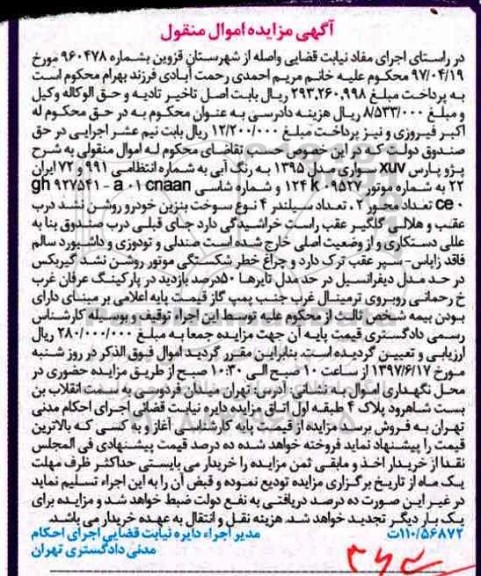 آگهی مزایده اموال منقول
در راستای اجرای مفاد نیابت قضایی واصله از شهرستان قزوین بشماره ۹۶۰۴۷۸ مورخ
۹۷/۰۴/۱۹ محکوم علیه خانم مریم احمدی رحمت آبادی فرزند بهرام محکوم است
به پرداخت مبلغ ۲۹۳,۲۶۰,۹۹۸ ریال بابت اصل تاخیر تادیه و حق الوکاله وکیل
و مبلغ ۸/۵۳۳/۰۰۰ ریال هزینه دادرسی به عنوان محکوم به در حق محکوم له
اکبر فیروزی و نیز پرداخت مبلغ ۱۲/۲۰۰/۰۰۰ ریال بابت نیم عشر اجرایی در حق
صندوق دولت که در این خصوص حسب تقاضای محکوم له اموال منقولی به شرح
پژو پارس xuv سواری مدل ۱۳۹۵ به رنگ آبی به شماره انتظامی ۹۹۱ و ۷۲ ایران
۲۲ به شماره موتور ۱۲۴k۰۹۵۲۷ و شماره شاسی gh ۹۲۷۵۴۱ - a ۰۱ cnaan
ce ۰ تعداد محور ۲، تعداد سیلندر ۴ نوع سوخت بنزین خودرو روشن نشد درب
عقب و هلالی گلگیر عقب راست خراشیدگی دارد جای قبلی درب صندوق بنا به
عللی دستکاری و از وضعیت اصلی خارج شده است صندلی و تودوزی و داشبورد سالم
فاقد زاپاس- سپر عقب ترک دارد و چراغ خطر شکستگی موتور روشن نشد گیربکس
در حد مدل دیفرانسیل در حد مدل تایرها ۵۰درصد بازدید در پارکینگ عرفان غرب
خ رحمانی روبروی ترمینال غرب جنب پمپ گاز قیمت پایه اعلامی بر مبنای دارای
بودن بیمه شخص ثالث از محکوم علیه توسط این اجراء توقیف و بوسیله کارشناس
رسمی دادگستری قیمت پایه آن جهت مزایده جمعا به مبلغ ۲۸۰/۰۰۰/۰۰۰ ریال
ارزیابی و تعیین گردیده است. بنابراین مقرر گردید اموال فوق الذکر در روز شنبه
مورخ ۱۳۹۷/۶/۱۷ از ساعت ۱۰ صبح الی ۱۰:۳۰ صبح از طریق مزایده حضوری در
محل نگهداری اموال به نشانی: آدرس: تهران میدان فردوسی به سمت انقلاب بن
بست شاهرود پلاک ۴ طبقه اول اتاق مزایده دایره نیابت قضائی اجرای احکام مدنی
تهران به فروش برسد. مزایده از قیمت پایه کارشناسی آغاز و به کسی که بالاترین
قیمت را پیشنهاد نماید فروخته خواهد شده ده درصد قیمت پیشنهادی فی المجلس
نقدا از خریدار اخذ و مابقی ثمن مزایده را خریدار می بایستی حداکثر ظرف مهلت
یک ماه از تاریخ برگزاری مزایده تودیع نموده و قبض آن را به این اجراء تسلیم نماید
در غیر این صورت ده درصد دریافتی به نفع دولت ضبط خواهد شد و مزایده برای
یک بار دیگر تجدید خواهد شد. هزینه نقل و انتقال به عهده خریدار می باشد.
۱۱۰/۵۶۸۷۲ت مدیر اجراء دایره نیابت قضایی اجرای احکام
مدنی دادگستری تهران